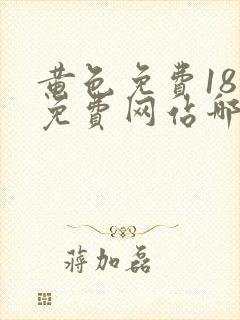 黄色免费18
免费网佔哪
蒋加磊